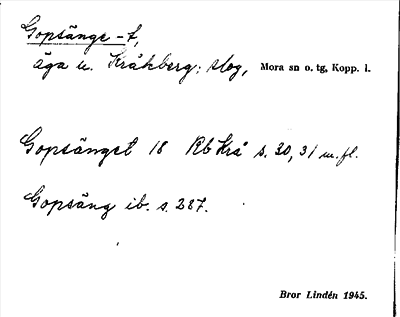 Gopsänge -t,
äga u. Kråkberg: skog, Mora sn o. tg, Kopp. l.
Gopsänget 18 Rb Krå s. 30, 31 m.fl.
Gopsäng ib. s. 287.
Bror Lindén 1945.